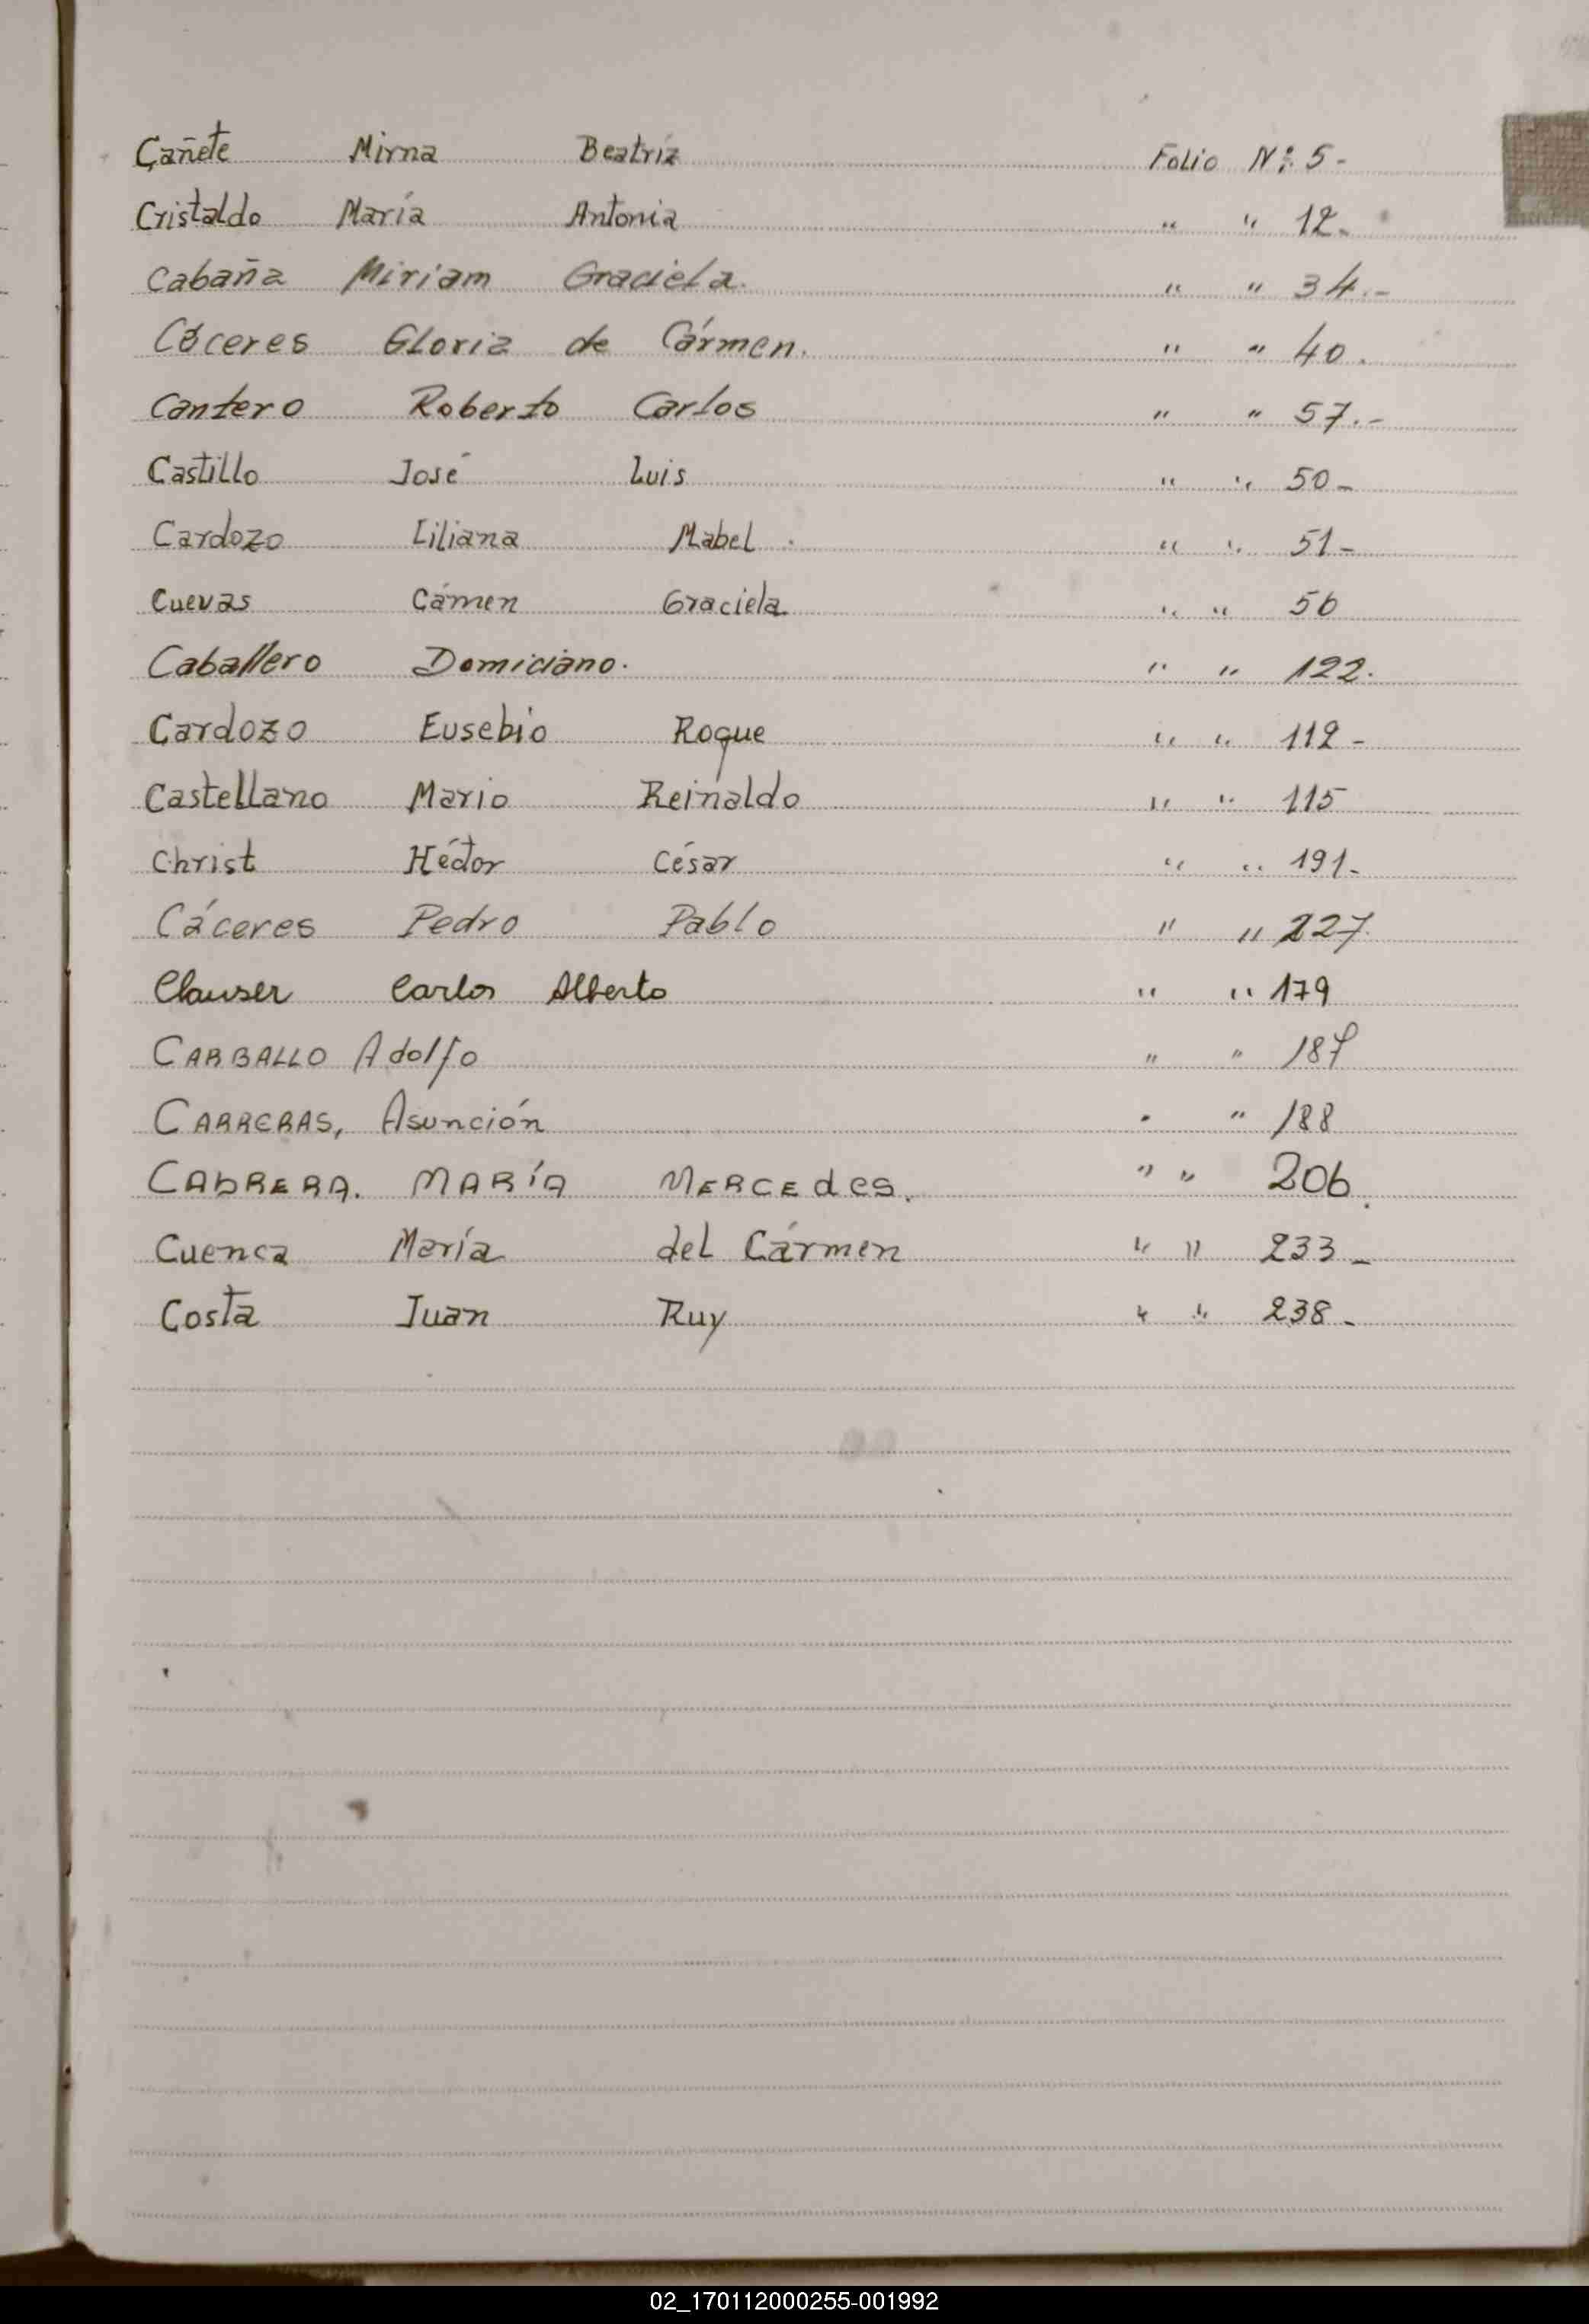 Cañete Mirna Beatríz Folio Nº: 5-
Cristaldo María Antonia " " 12-
Cabaña Miriam Graciela. " " 34.-
Cáceres Gloria de Cármen. " " 40.
Cantero Roberto Carlos " " 57.-
Castillo José Luis " " 50-
Cardozo Liliana Mabel. " " 51-
Cuevas Cámen Graciela " " 56
Caballero Domiciano. " " 122.
Cardozo Eusebio Roque " " 112-
Castellano Mario Reinaldo " " 115
Christ Héctor César " " 191-
Cáceres Pedro Pablo " " 227.
Clauser Carlos Alberto " " 179
CARBALLO Adolfo " " 187
CARRERAS, Asunción " " 188
CABRERA. MARÍA MERCEdes. " " 206.
Cuenca María del Cármen " " 233-
Costa Juan Ruy " " 238-
02_170112000255-001992